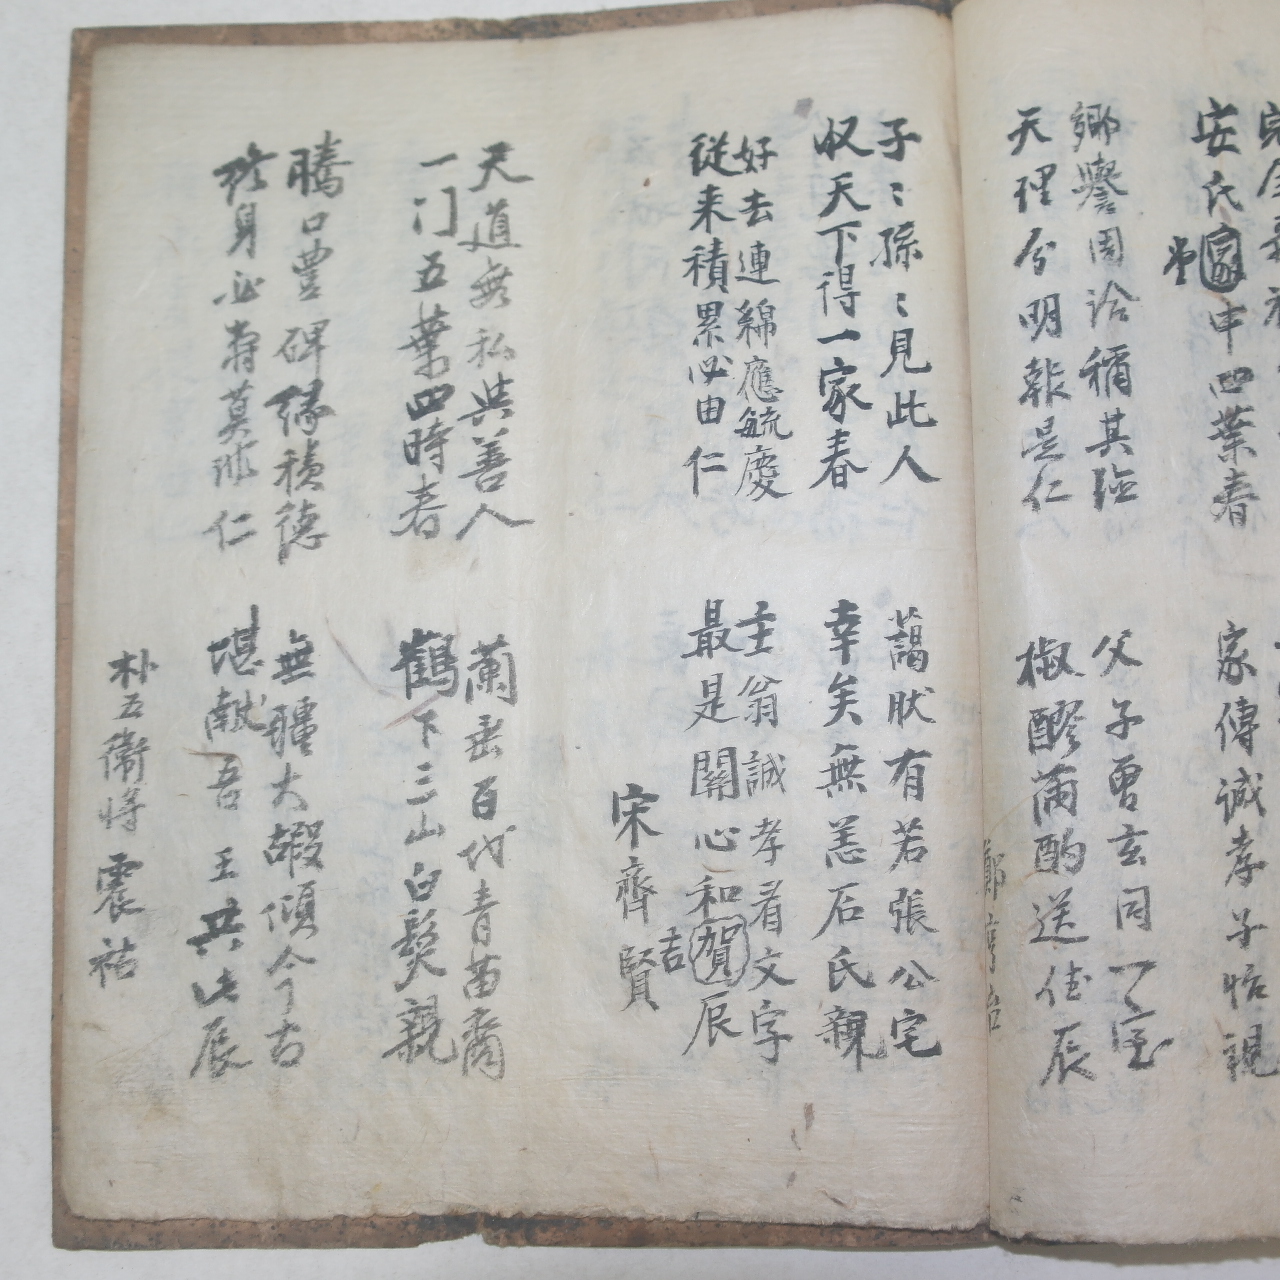 安氏家中四葉春
堂
家傳誠孝子怡親
鄉譽周洽稱其
父子曾玄同一室
天理分明報是仁
椒醪滿酌送佳辰
鄭
子〻孫〻見此人
藹狀有若張公宅
収天下得一家春
幸矣無恙石氏親
好去連綿應毓慶
主翁誠孝看文字
從来積累必由仁
最是關心和賀辰
吉
宋齊賢
天道無私共善人
蘭垂百代青苗裔
一门五葉四時春
鶴下三山白髮親
騰口豊碑緣積德
無疆大嘏傾今古
修身必壽莫非仁
堪獻吾王共此辰
朴五衛将 震祜